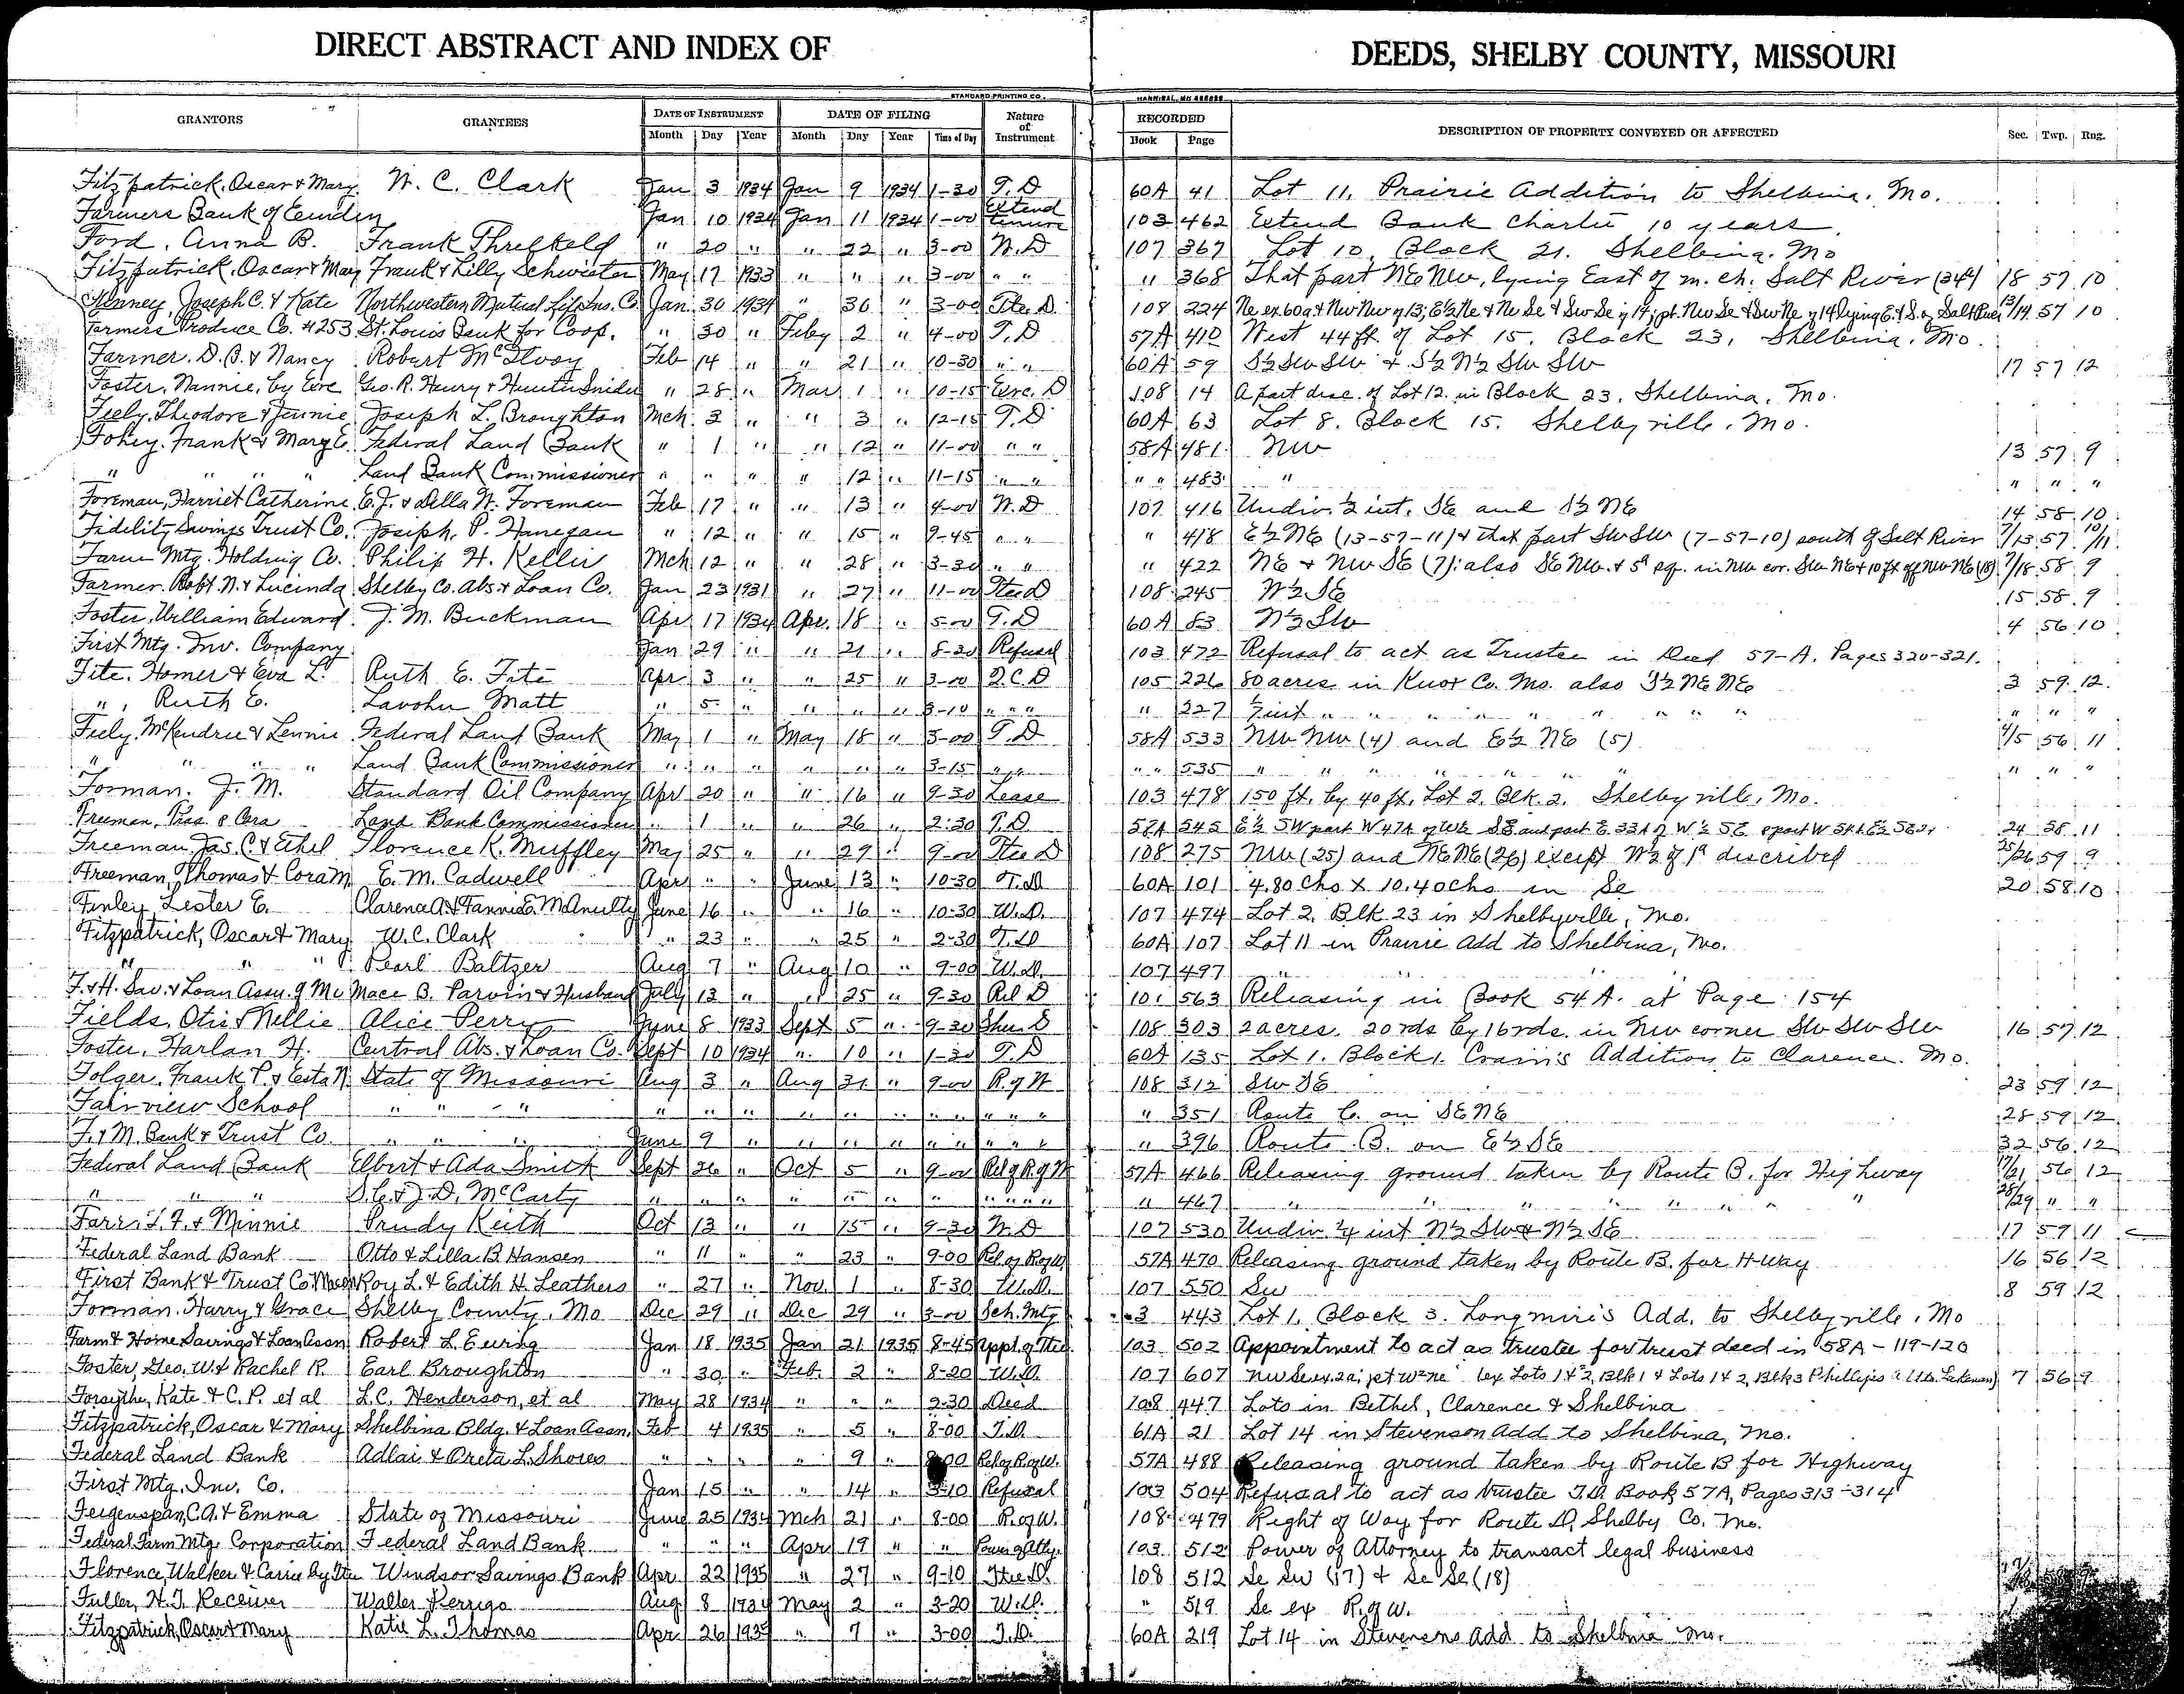 DIRECT ABSTRACT AND INDEX OF DEEDS, SHELBY COUNTY, MISSOURI
STANDARD PRINTING CO.
GRANTORS GRANTEES DATE OF INSTRUMENT DATE OF FILING Nature of Instrument RECORDED DESCRIPTION OF PROPERTY CONVEYED OR AFFECTED Sec. Twp. Rng.
Month Day Year Month Day Year Time of Day Book Page
Fitzpatrick, Oscar & Mary W. C. Clark Jan 3 1934 Jan 9 1934 1-30 T.D 60A 41 Lot 11, Prairie Addition to Shelbina, Mo.
Farmers Bank of Emden Jan 10 1934 Jan 11 1934 1-00 Extend 103 462 Extend Bank Charter 10 years.
Ford, Anna B. Frank Threlkeld " 20 " " 22 " 3-00 W.D 107 367 Lot 10, Block 21. Shelbina, Mo
Fitzpatrick, Oscar & Mary Frank & Lilly Schwieter May 17 1933 " " " 3-00 " " " 368 That part NE NW, lying East of m. ch. Salt River (34a) 18 57 10
Finney, Joseph C. & Kate Northwestern Mutual Life Ins. Co. Jan. 30 1934 " 30 " 3-00 Tte. D. 108 224 Ne ex. 60a & Nw Nw of 13; E½ Ne & Ne Se & Sw Se of 14; pt. Nw Se & Sw Ne of 14 lying E. & S. of Salt River 13/14 57 10
Farmers Produce Co. #253 St. Louis Bank for Coop. " 30 " Feby 2 " 4-00 T.D 57A 410 West 44 ft. of Lot 15, Block 23, Shelbina, Mo.
Farmer, D. B. & Nancy Robert McIlvoy Feb 14 " " 21 " 10-30 " " 60A 59 S½ SW SW & S½ N½ SW SW 17 57 12
Foster, Nannie, by Exe Geo. R. Henry & Hunter Snider " 28 " Mar 1 " 10-15 Exec. D 108 14 A part desc. of Lot 12 in Block 23, Shelbina, Mo.
Feely, Theodore & Jennie Joseph L. Broughton Mch. 3 " " 3 " 12-15 T.D 60A 63 Lot 8. Block 15. Shelbyville, Mo.
Fohey, Frank & Mary E. Federal Land Bank " 1 " " 12 " 11-00 " " 58A 481 NW 13 57 9
" " " " Land Bank Commissioner " " " " 12 " 11-15 " " " " 483 " " " "
Foreman, Harriet Catherine E. J. & Della N. Foreman Feb 17 " " 13 " 4-00 W.D 107 416 Undiv. ½ int. SE and S½ NE 14 58 10
Fidelity Savings Trust Co. Joseph P. Hanegan " 12 " " 15 " 9-45 " " " 418 E½ NE (13-57-11) & that part SW SW (7-57-10) south of Salt River 7/13 57 10/11
Farm Mtg. Holding Co. Philip H. Keller Mch 12 " " 28 " 3-30 " " " 422 NE & NW SE (7): also SE NW. & 5a sq. in NW cor. SW NE & 10 ft off NW NE (18) 7/18 58 9
Farmer, Robt. N. & Lucinda Shelby Co. Abs. & Loan Co. Jan 23 1931 " 27 " 11-00 Ttee D 108 245 W½ SE 15 58 9
Foster, William Edward J. M. Buckman Apr 17 1934 Apr. 18 " 5-00 T.D 60A 83 W½ SW 4 56 10
First Mtg. Inv. Company Jan 29 " " 21 " 8-30 Refusal 103 472 Refusal to act as Trustee in Deed 57-A. Pages 320-321.
Fite, Homer & Eva L. Ruth E. Fite Apr 3 " " 25 " 3-00 Q.C.D 105 226 80 acres in Knox Co. Mo. also S½ NE NE 3 59 12
" , Ruth E. Lavohn Matt " 5 " " " " 3-10 " " " " 227 ½ int " " " " " " " " " " "
Feely, McKendree & Lennie Federal Land Bank May 1 " May 18 " 3-00 T.D 58A 533 NW NW (4) and E½ NE (5) 4/5 56 11
" " " " Land Bank Commissioner " " " " " " 3-15 " " " " 535 " " " " " " " " " "
Forman, J. M. Standard Oil Company Apr 20 " " 16 " 9-30 Lease 103 478 150 ft. by 40 ft, Lot 2, Blk. 2. Shelbyville, Mo.
Freeman, Thos. & Cora Land Bank Commissioner " 1 " " 26 " 2:30 T.D. 58A 545 E½ SW part W 47A of W½ SE and part E 33A of W½ SE 24 58 11
Freeman, Jas. C. & Ethel Florence K. Muffley May 25 " " 29 " 9-00 Ttee D 108 275 NW (25) and NE NE (26) except W½ of 1a described 25/26 59 9
Freeman, Thomas & Cora M E. M. Cadwell Apr " " June 13 " 10-30 T.D. 60A 101 4.80 Chs X 10.40 Chs in Se 20 58 10
Finley Lester E. Clarence A. & Fannie E. McAnulty June 16 " " 16 " 10-30 W.D. 107 474 Lot 2, Blk 23 in Shelbyville, Mo.
Fitzpatrick, Oscar & Mary W.C. Clark " 23 " " 25 " 2-30 T.D 60A 107 Lot 11 in Prairie Add to Shelbina, Mo.
" " " Pearl Baltzer Aug 7 " Aug 10 " 9-00 W.D. 107 497 " " "
F. & H. Sav. & Loan Assn. of Mo Mace B. Parvin & Husband July 13 " " 25 " 9-30 Rel D 101 563 Releasing in Book 54 A. at Page 154
Fields, Otis & Nellie Alice Perry June 8 1933 Sept 5 " 9-30 She. D 108 303 2 acres. 20 rds by 16 rds. in NW corner SW SW SW 16 57 12
Foster, Harlan H. Central Abs. & Loan Co. Sept 10 1934 " 10 " 1-30 T.D 60A 135 Lot 1. Block 1. Crain's Addition to Clarence. Mo.
Folger, Frank P. & Esta N State of Missouri Aug 3 " Aug 31 " 9-00 R. of W 108 312 SW SE 23 59 12
Fairview School " " " " " " " " " " " " " " " 351 Route C. on SE NE 28 59 12
F. & M. Bank & Trust Co. " " " June 9 " " " " " " " " " " 396 Route B. on E½ SE 32 56 12
Federal Land Bank Elbert & Ada Smith Sept 26 " Oct 5 " 9-00 Rel of R of W 57A 466 Releasing ground taken by Route B. for Highway 17/21 56 12
" " " S. C. & J. D. McCarty " " " " " " " " " " " " 467 " " " " " " " " 28/29 " "
Farr, L. F. & Minnie Prudy Keith Oct 13 " " 15 " 9-30 W.D 107 530 Undiv. ¼ int N½ SW & N½ SE 17 57 11
Federal Land Bank Otto & Lilla B. Hansen " 11 " " 23 " 9-00 Rel of R of W 57A 470 Releasing ground taken by Route B. for H-Way 16 56 12
First Bank & Trust Co. Roy L. & Edith H. Leathers " 27 " Nov. 1 " 8-30 W.D. 107 550 Sw 8 59 12
Forman, Harry & Grace Shelby County, Mo Dec 29 " Dec 29 " 3-00 Sch. Mtg 3 443 Lot 1, Block 3. Longmire's Add. to Shelbyville, Mo
Farm & Home Savings & Loan Assn Robert L. Ewing Jan 18 1935 Jan 21 1935 8-45 Appt. of Ttee. 103 502 Appointment to act as trustee for trust deed in 58A-119-120
Foster, Geo. W. & Rachel R. Earl Broughton " 30 " Feb. 2 " 8-20 W.D. 107 607 NW Se ex. 2a; pt W½ ne (ex Lots 1 & 2, Blk 1 & Lots 1 & 2, Blk 3 Phillipis Lakenan) 7 56 9
Forsythe, Kate & C. P. et al L.C. Henderson, et al May 28 1934 " " " 2-30 Deed 108 447 Lots in Bethel, Clarence & Shelbina
Fitzpatrick, Oscar & Mary Shelbina Bldg. & Loan Assn. Feb 4 1935 " 5 " 8-00 T.D. 61A 21 Lot 14 in Stevenson Add to Shelbina, Mo.
Federal Land Bank Adlai & Oreta L. Shores " " " " 9 " 8-00 Rel of R of W. 57A 488 Releasing ground taken by Route B for Highway
First Mtg. Inv. Co. Jan 15 " " 14 " 3-10 Refusal 103 504 Refusal to act as trustee T.D. Book 57A, Pages 313-314
Feigenspan, C.A. & Emma State of Missouri June 25 1934 Mch 21 " 8-00 R. of W. 108 479 Right of Way for Route D, Shelby Co. Mo.
Federal Farm Mtg. Corporation Federal Land Bank " " " Apr 19 " " Power of Atty. 103 512 Power of Attorney to transact legal business
Florence, Walker & Carrie by Ttee Windsor Savings Bank Apr 22 1935 " 27 " 9-10 Ttee D. 108 512 Se Sw (17) & Se Se (18)
Fuller, H. T. Receiver Walter Perrigo Aug 8 1934 May 2 " 3-20 W.D. " 519 Se ex R. of W.
Fitzpatrick, Oscar & Mary Katie L. Thomas Apr 26 1935 " 7 " 3-00 T.D. 60A 219 Lot 14 in Stevensons Add to Shelbina Mo.